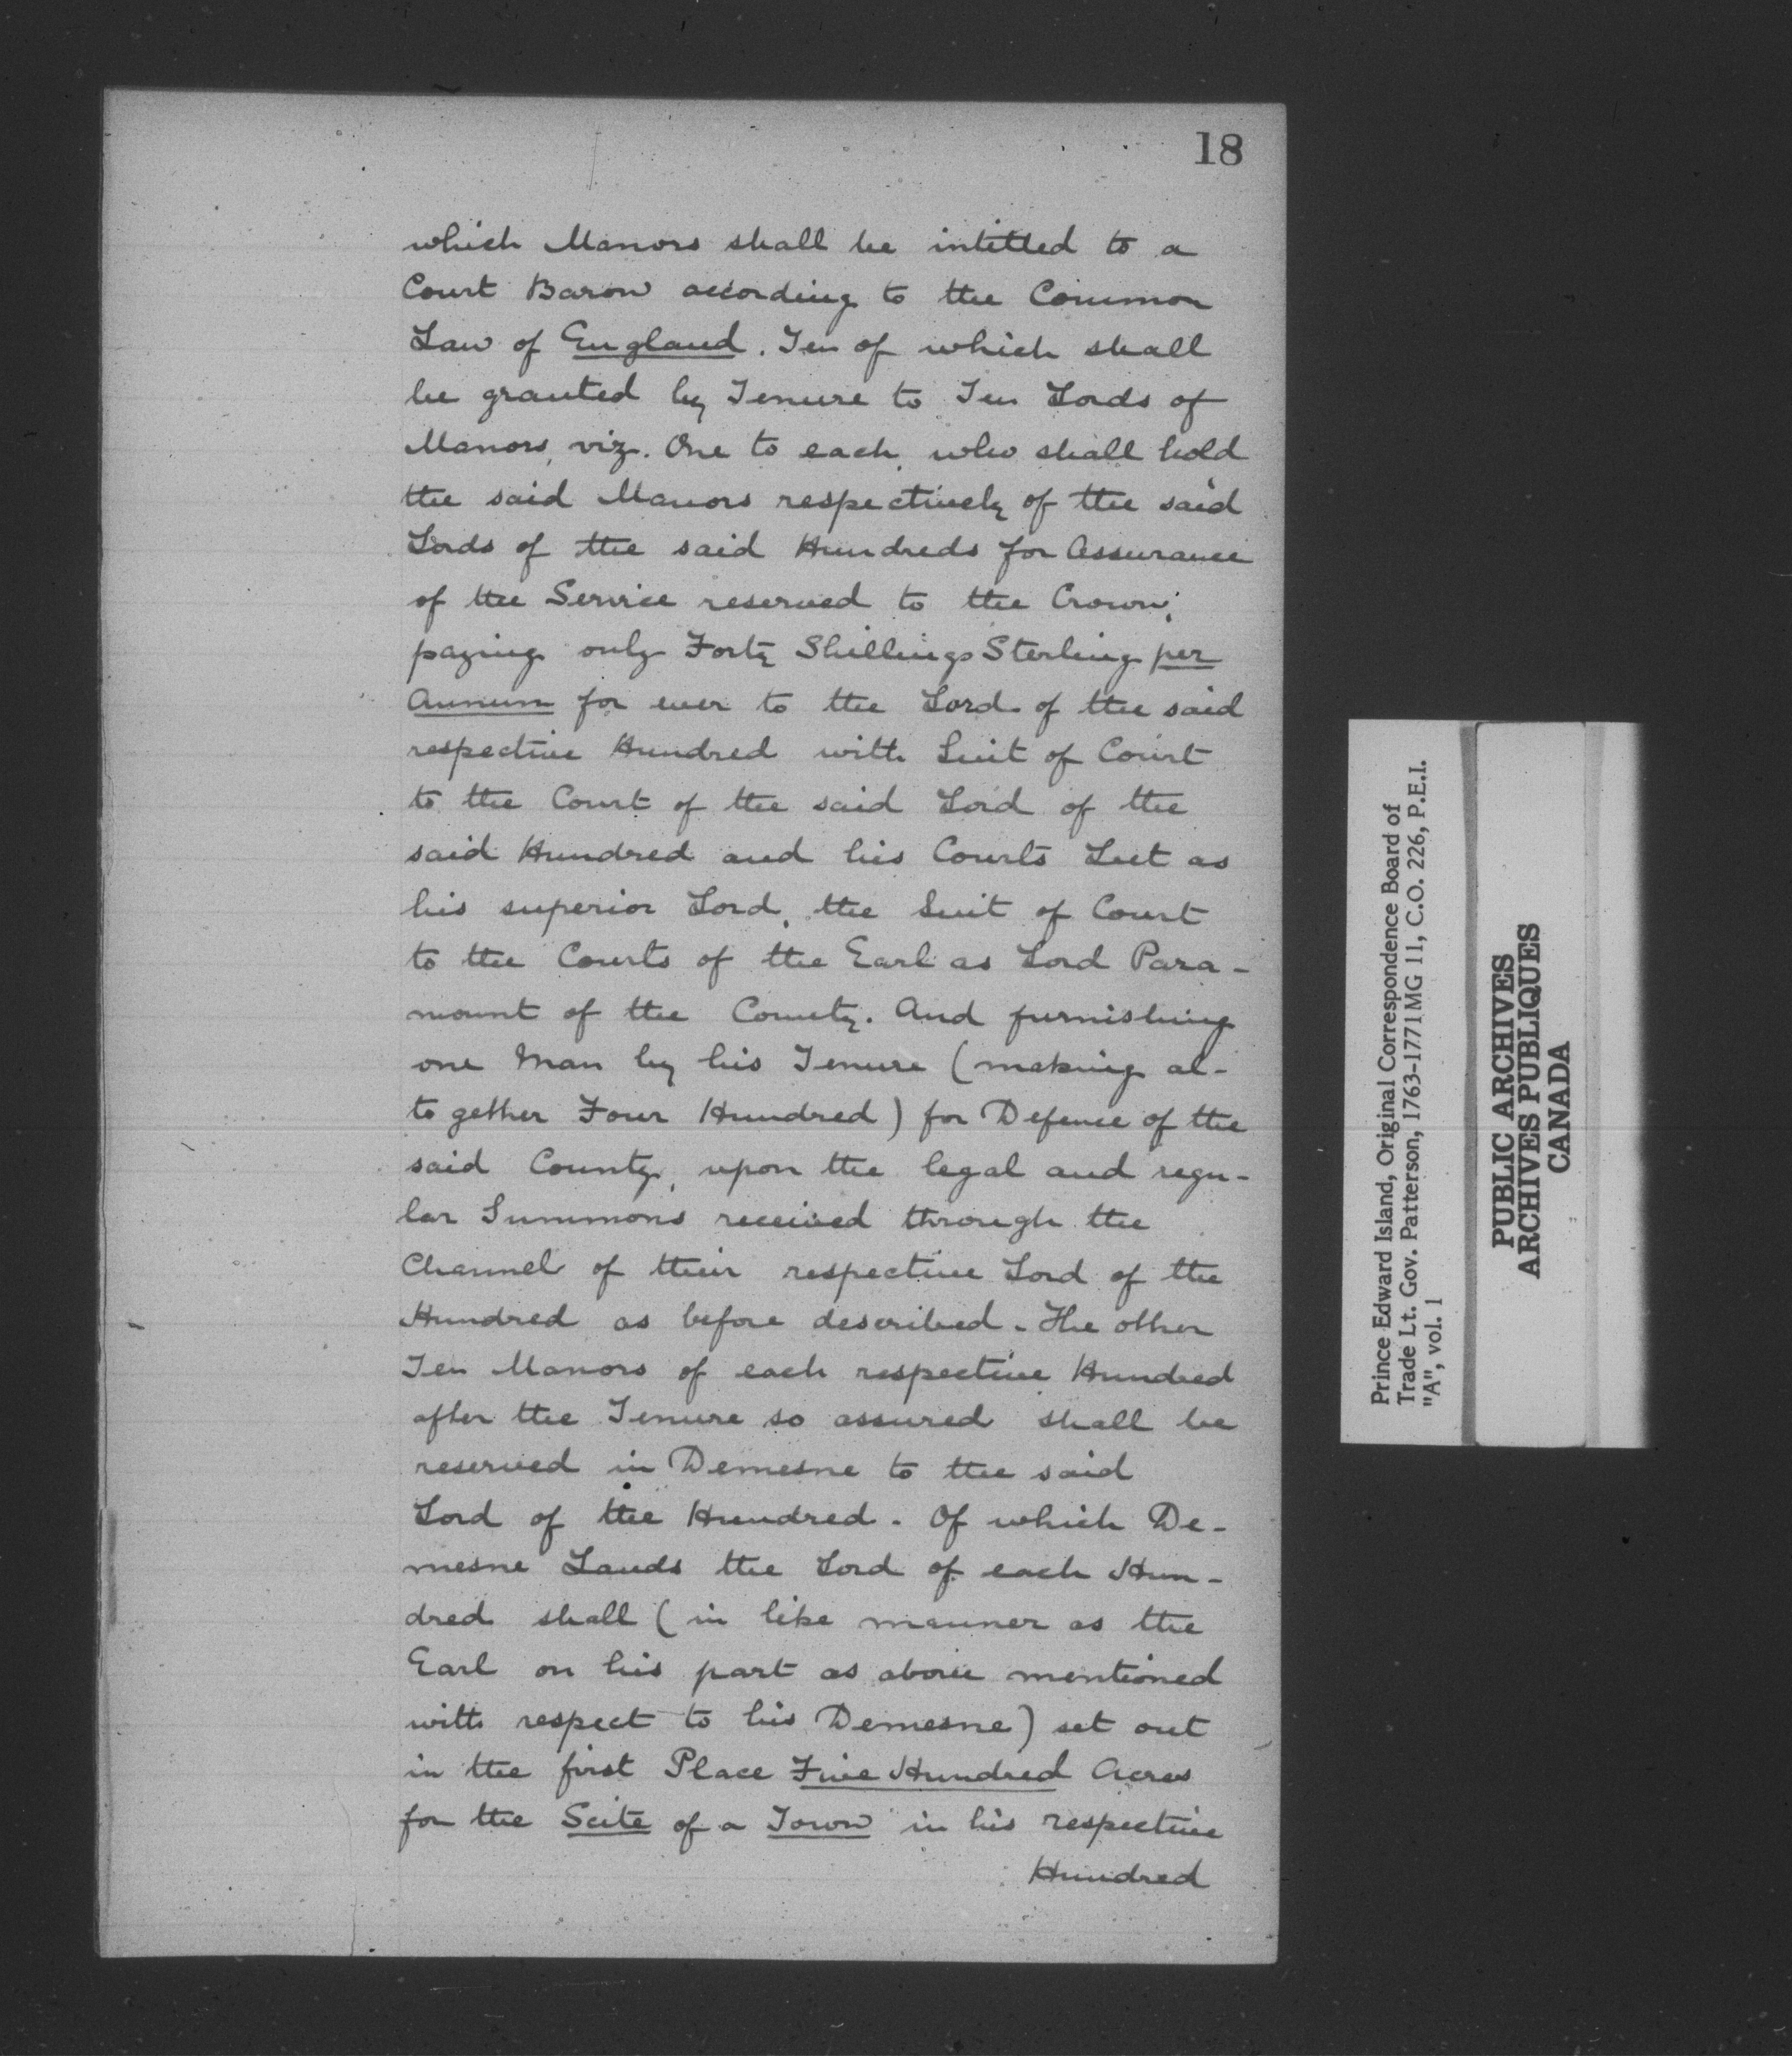 18
which Manors shall be intitled to a
Court Baron according to the Common
Law of England. Ten of which shall
be granted by Tenure to Ten Lords of
Manors, viz. One to each, who shall hold
the said Manors respectively of the said
Lords of the said Hundreds for Assurance
of the Service reserved to the Crown;
paying only Forty Shillings Sterling per
Annum for ever to the Lord of the said
respective Hundred with Suit of Court
to the Court of the said Lord of the
said Hundred and his Courts Leet as
his superior Lord, the Suit of Court
to the Courts of the Earl as Lord Para-
mount of the County. And furnishing
one Man by his Tenure (making al-
together Four Hundred) for Defence of the
said County, upon the legal and regu-
lar Summons received through the
Channel of their respective Lord of the
Hundred as before described. The other
Ten Manors of each respective Hundred
after the Tenure so assured shall be
reserved in Demesne to the said
Lord of the Hundred. Of which De-
mesne Lands the Lord of each Hun-
dred shall (in like manner as the
Earl on his part as above mentioned
with respect to his Demesne) set out
in the first Place Five Hundred Acres
for the Scite of a Town in his respective
Hundred
Prince Edward Island, Original Correspondence Board of
Trade Lt. Gov. Patterson, 1763-1771 MG 11, C.O. 226, P.E.I.
"A", vol. 1
PUBLIC ARCHIVES
ARCHIVES PUBLIQUES
CANADA